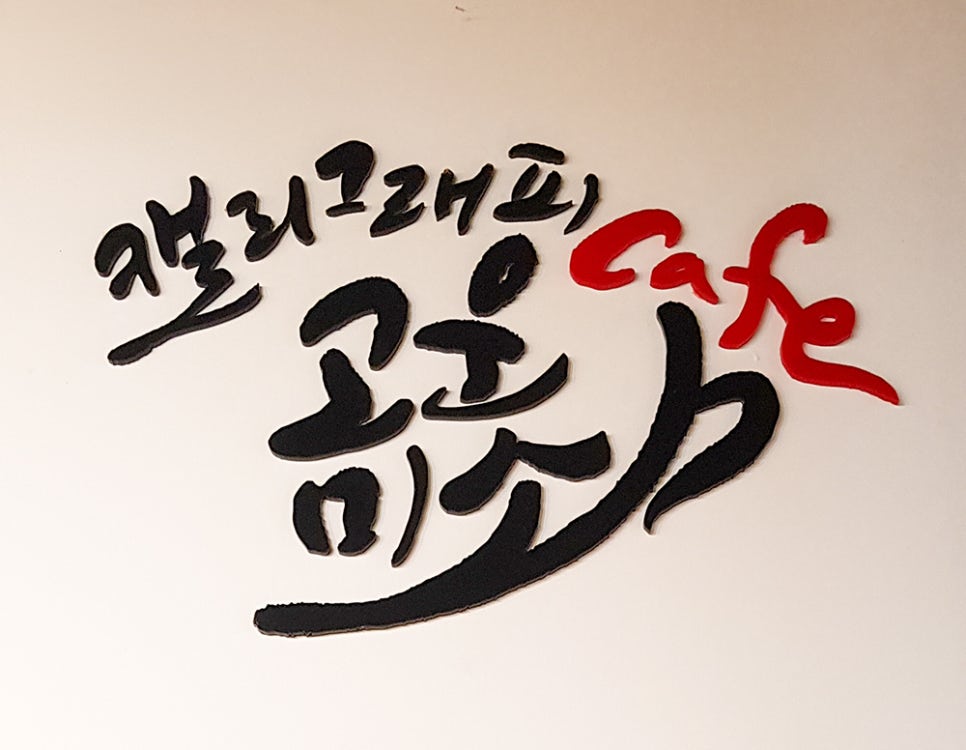 캘리그래피 cafe
고운
미소